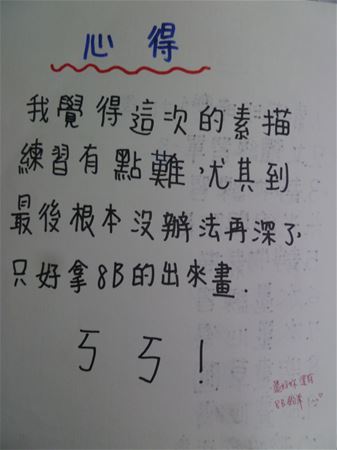 心得
我覺得這次的素描
練習有點難,尤其到
最後根本沒辦法再深了,
只好拿8B的出來畫.
ㄎㄎ!
還有
8B的筆